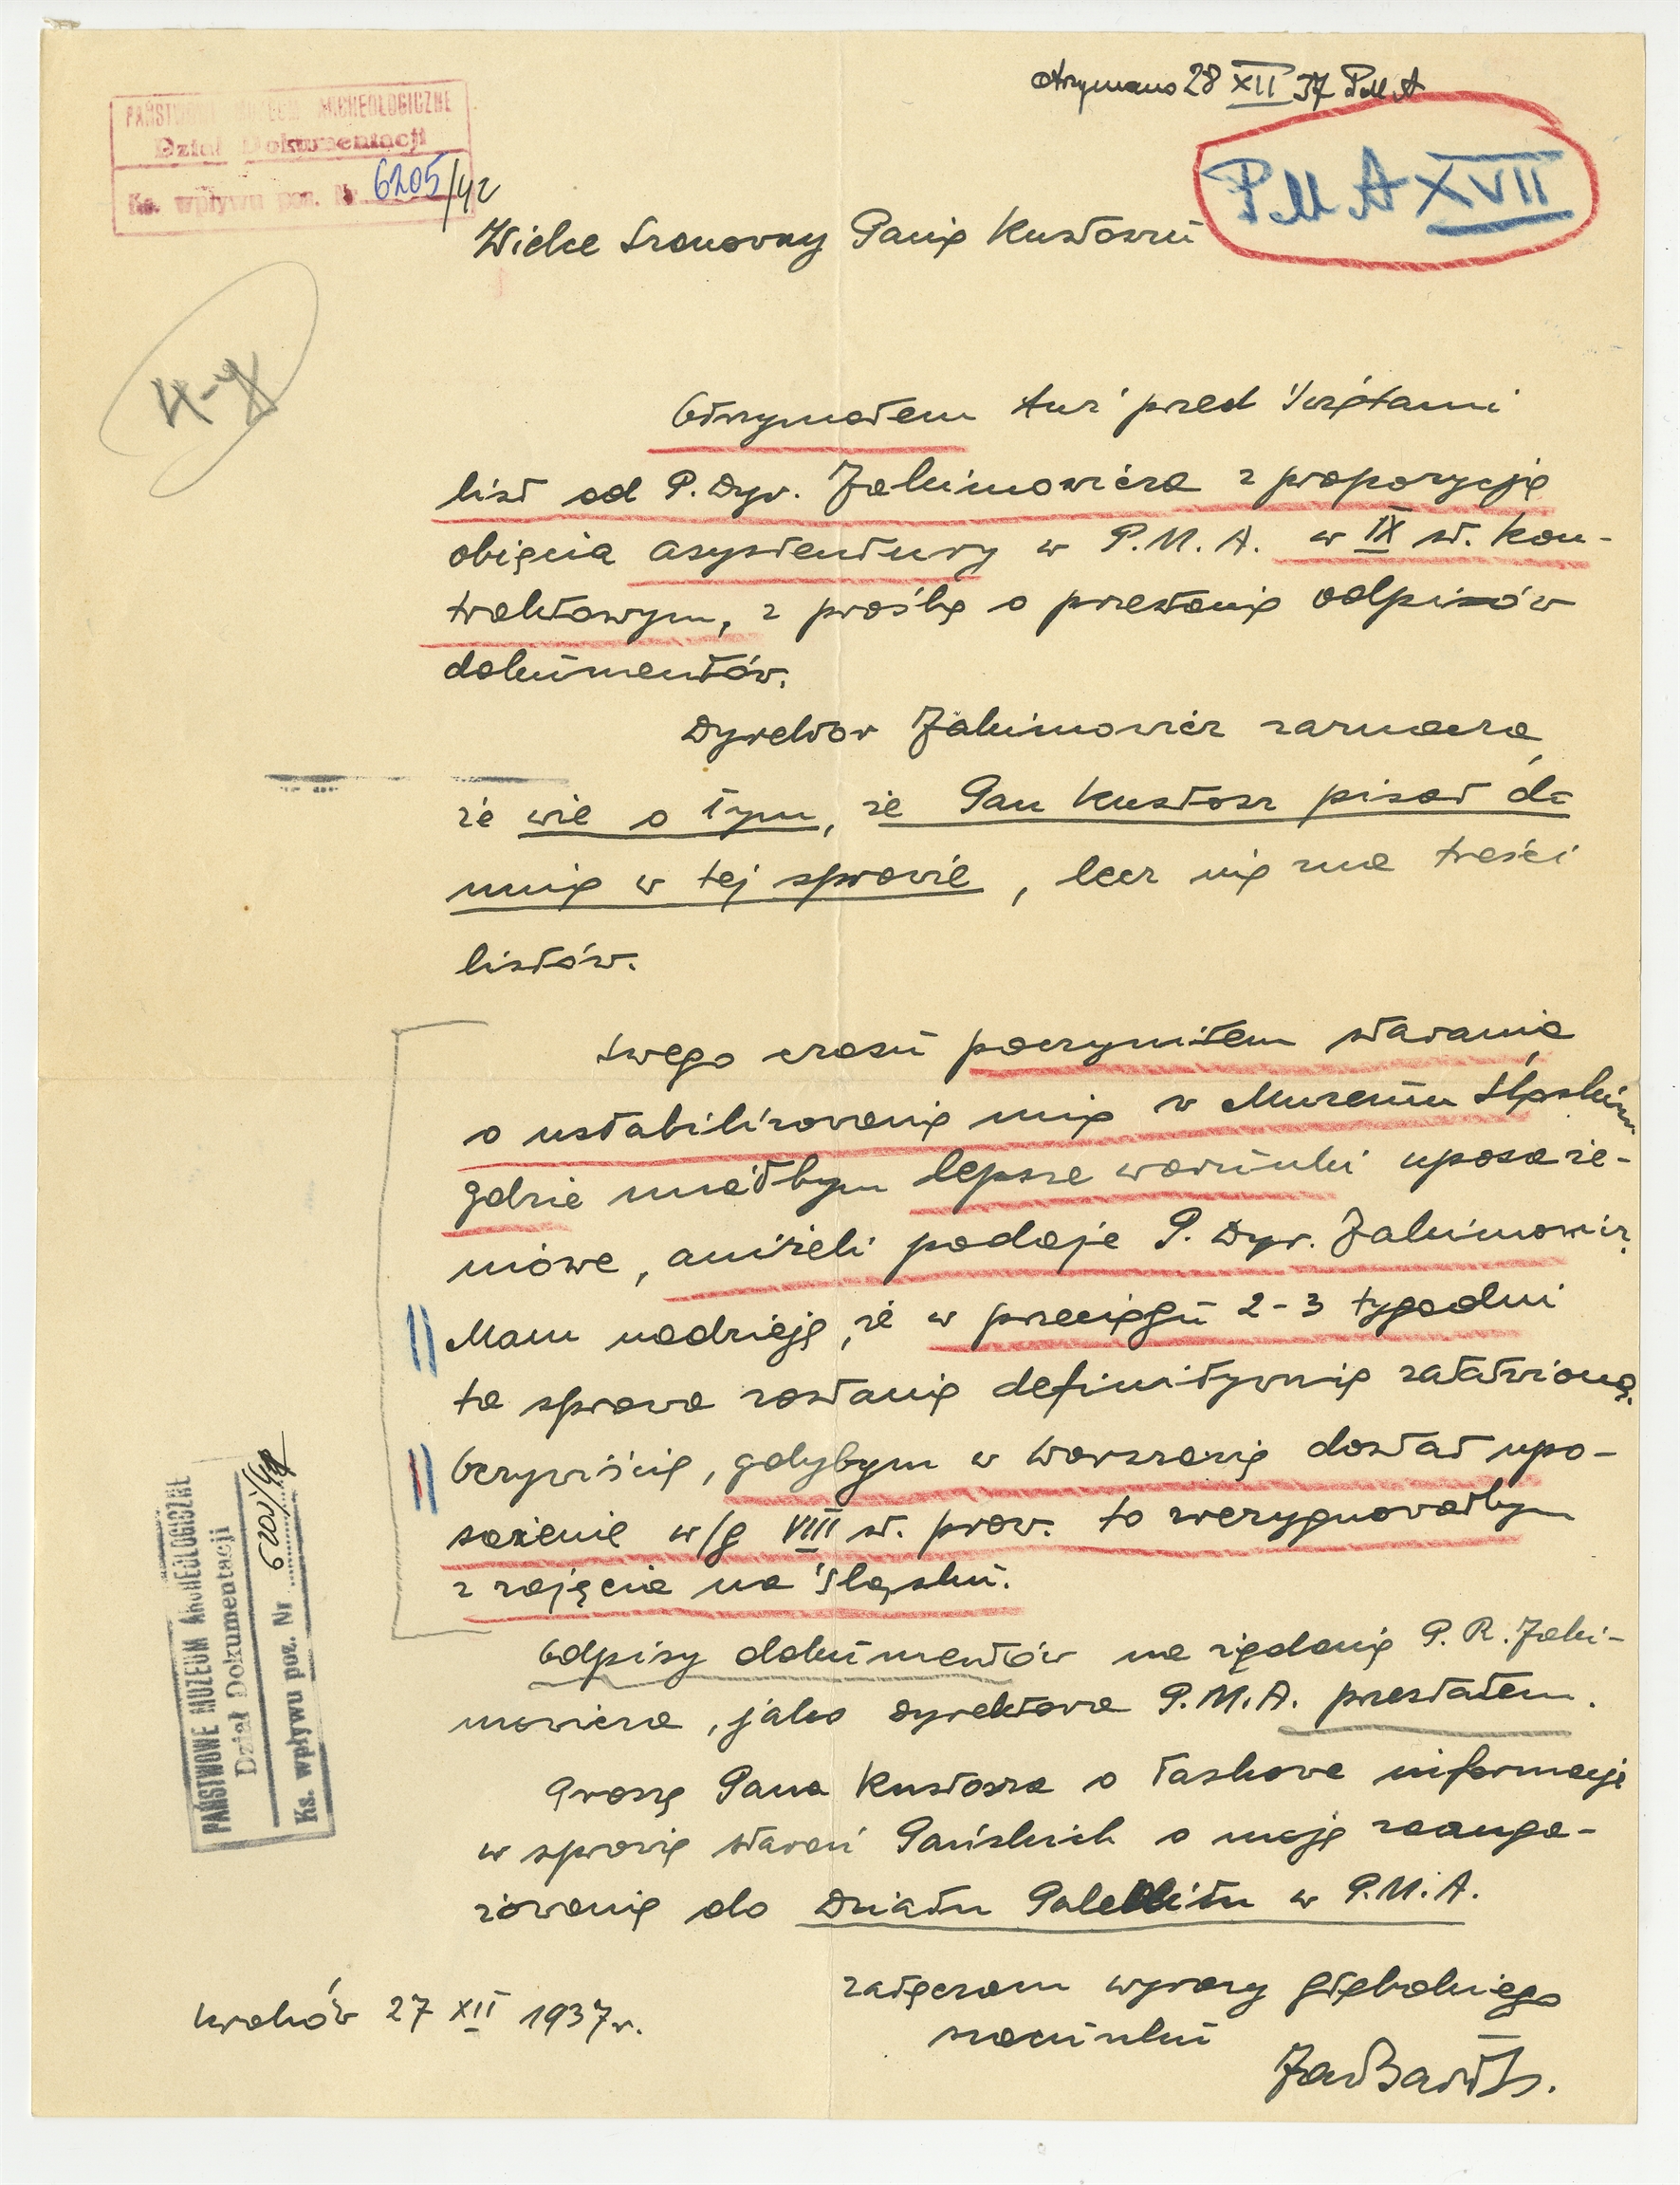 otrzymano 28 XII 37 PMA
PAŃSTWOWE MUZEUM ARCHEOLOGICZNE
Dział Dokumentacji
Ks. wpływu poz. Nr 6205/42
PMA XVII
Wielce Szanowny Panie Kustoszu
4-
Otrzymałem tuż przed Świętami
list od P. Dyr. Jakimowicza z propozycję
objęcia asystentury w P.M.A. w IX st. kon-
traktowym, z prośbę o przesłanie odpisów
dokumentów.
Dyrektor Jakimowicz zaznacza,
że wie o tym, że Pan Kustosz pisał do
mnie w tej sprawie, lecz nie zna treści
listów.
Swego czasu poczyniłem starania
o ustabilizowanie mię w Muzeum Śląskim
gdzie miałbym lepsze warunki uposaże-
niowe, aniżeli podaje P. Dyr. Jakimowicz.
Mam nadzieję, że w przeciągu 2-3 tygodni
ta sprawa zostanie definitywnie załatwioną.
Oczywiście, gdybym w Warszawie dostał upo-
sażenie w/g VIII st. prow. to zrezygnowałbym
z zajęcia na Śląsku.
Odpisy dokumentów na żądanie P. R. Jaki-
mowicza, jako dyrektora P.M.A. przesłałem.
Proszę Pana Kustosza o łaskawe informacje
w sprawie starań Pańskich o moje zaanga-
żowanie do Działu Paleolitu w P.M.A.
załączam wyrazy głębokiego
szacunku
Kraków 27 XII 1937 r.
PAŃSTWOWE MUZEUM ARCHEOLOGICZNE
Dział Dokumentacji
Ks. wpływu poz. Nr